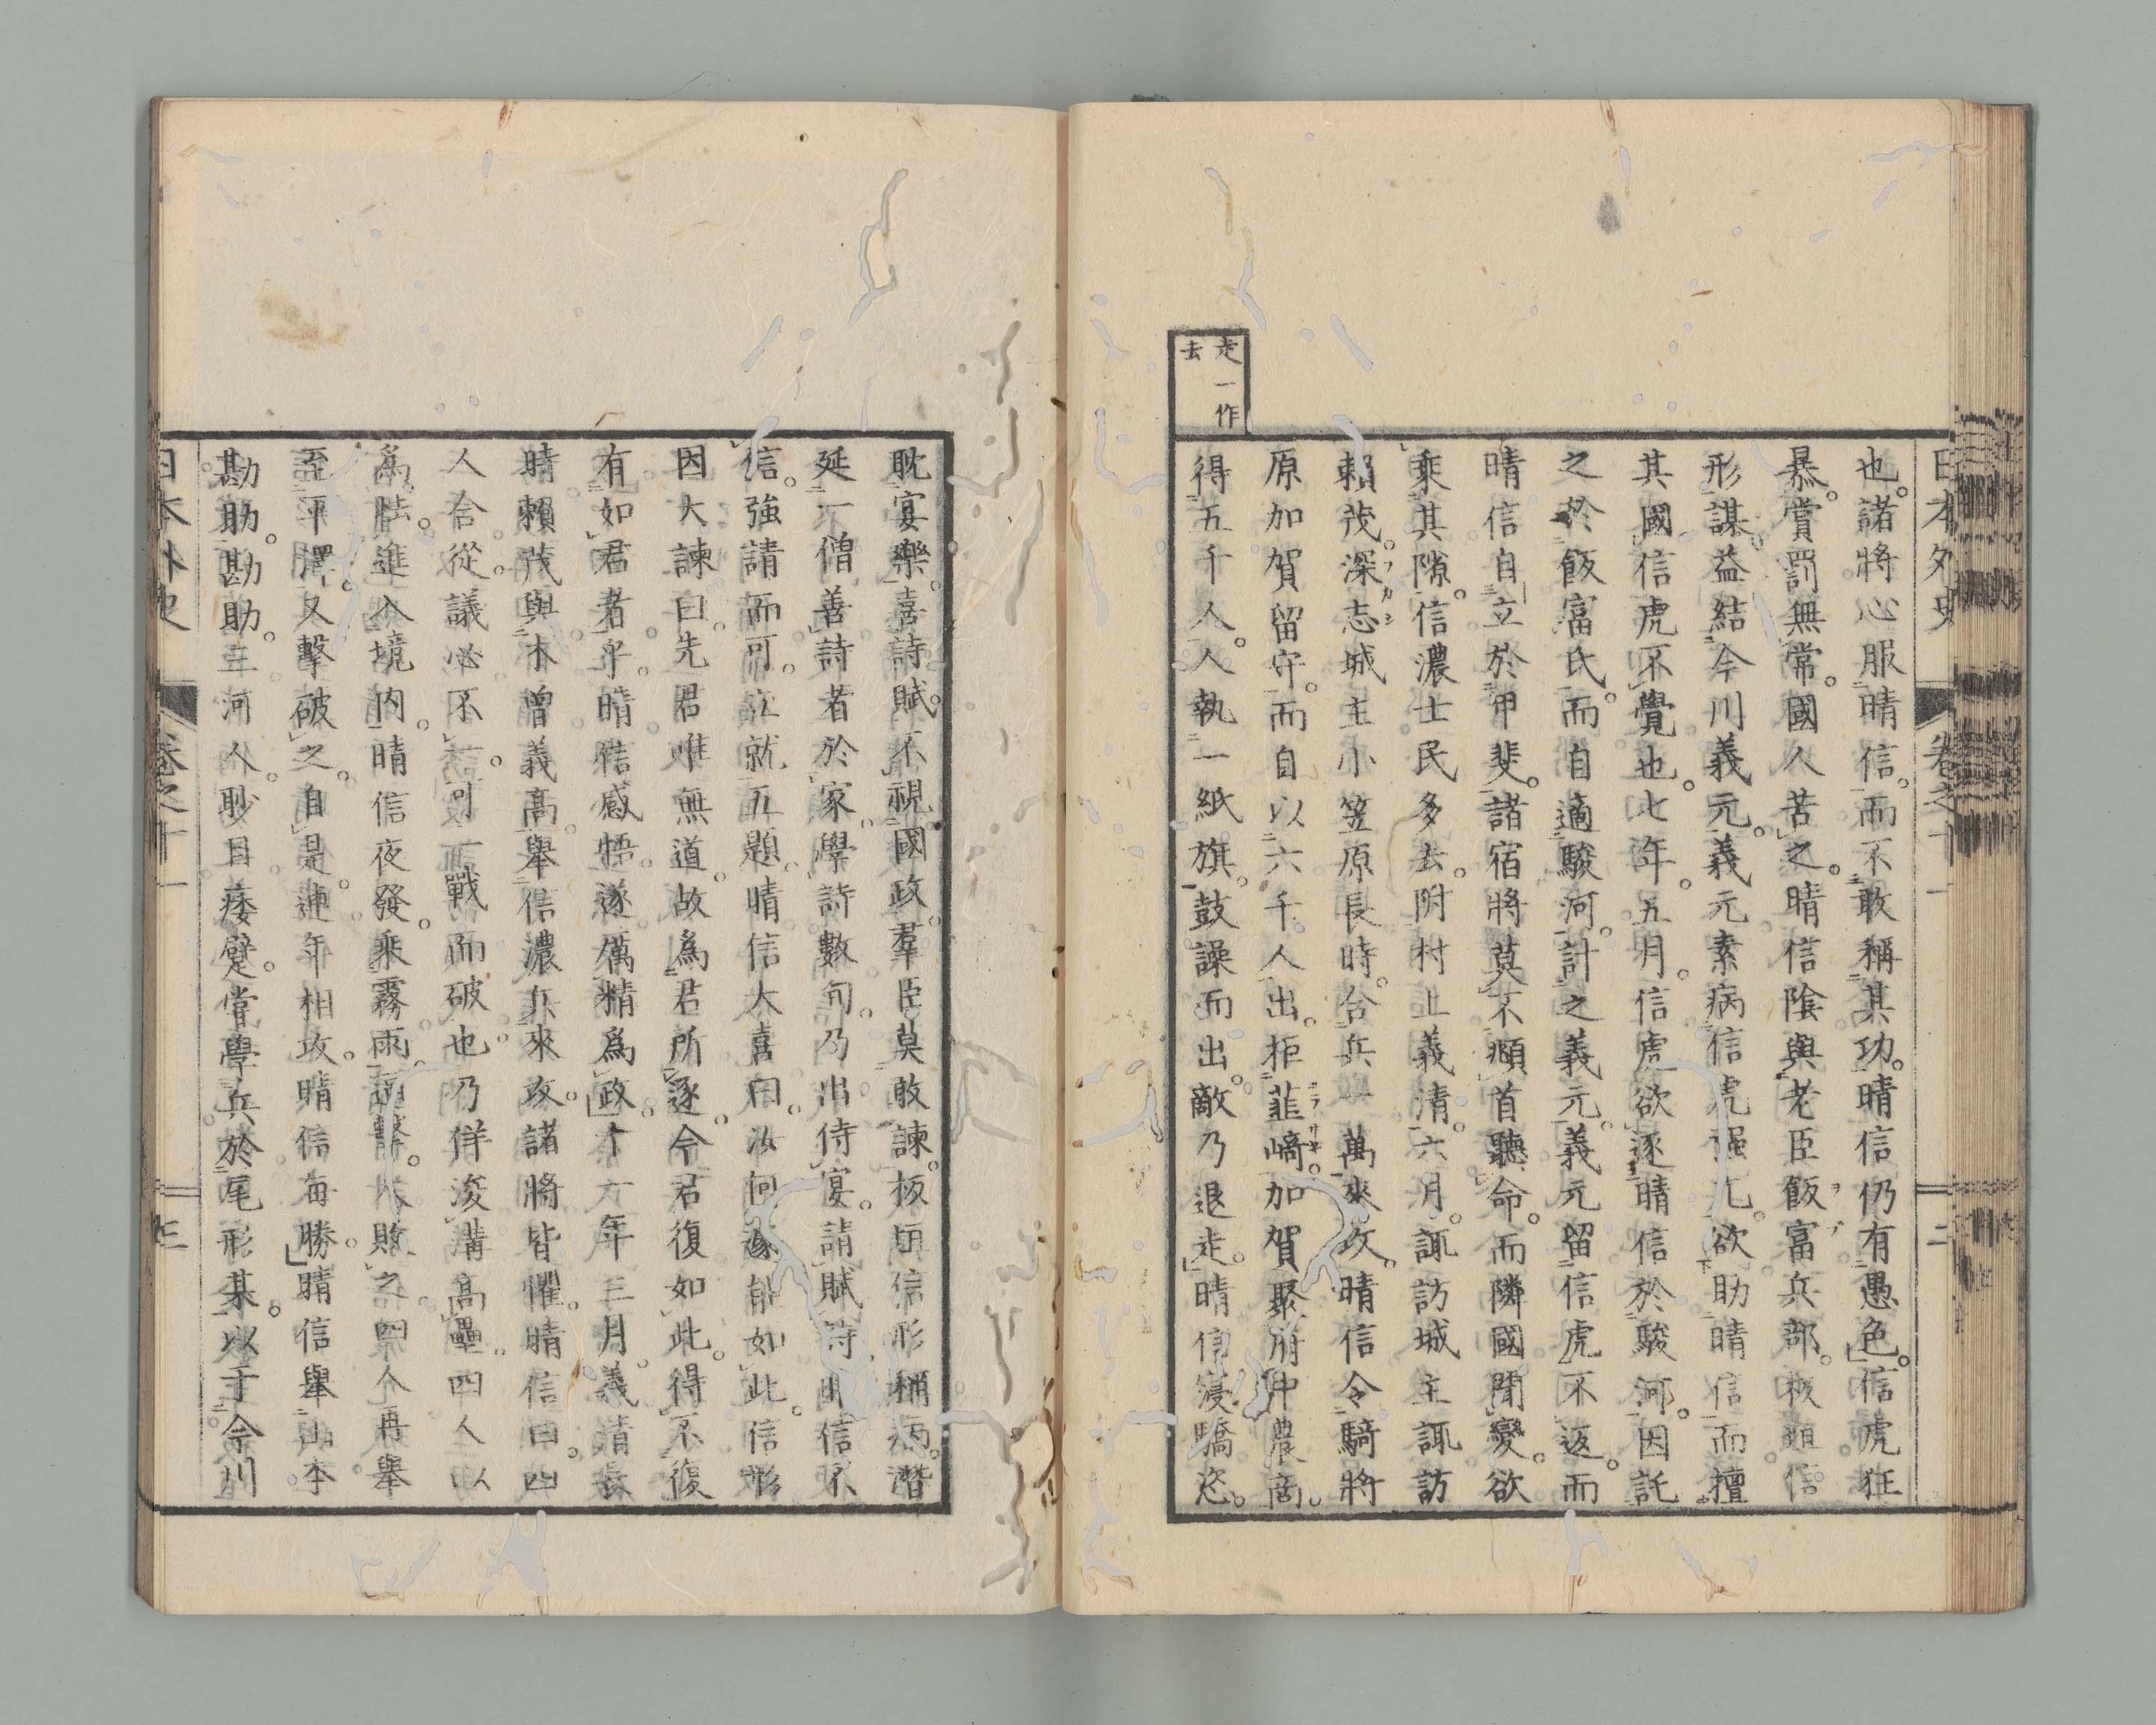 日本外史 卷之十一 二
也。諸將心服晴信。而不敢稱其功。晴信仍有愚色。信虎狂
暴。賞罰無常。國人苦之。晴信陰與老臣飯富兵部。板垣信
形謀。益結今川義元。義元素病信虎強亢。欲助晴信而擅
其國。信虎不覺也。七年。五月。信虎欲逐晴信於駿河。因託
之於飯富氏。而自適駿河。計之義元。義元留信虎不返。而
晴信自立於甲斐。諸宿將莫不頫首聽命。而隣國聞變。欲
乘其隙。信濃士民多去。附村上義清。六月。諏訪城主諏訪
賴茂。深志城主小笠原長時。合兵一萬來攻。晴信令騎將
原加賀留守。而自以六千人出。拒韮﨑。加賀聚府中農商。
得五千人。人執一紙旗。鼓譟而出。敵乃退走。晴信寖驕恣。
走一作
去
耽宴樂。喜詩賦。不視國政。羣臣莫敢諫。板垣信形稱病。潛
延一僧善詩者於家。學詩數旬。乃出侍宴。請賦詩。晴信不
信。強請而可。立就五題。晴信大喜曰。汝何遽能如此。信形
因大諫曰。先君唯無道。故爲君所逐。今君復如此。得不復
有如君者乎。晴信感悟。遂厲精爲政。十一年三月。義清長
晴賴茂與木曾義高。舉信濃兵來攻。諸將皆懼。晴信曰。四
人合從。議必不。可一戰而破也。乃佯浚溝高壘。四人以
爲怯。進入境内。晴信夜發。乘霧雨。逆擊。大敗之。四人再舉
至平澤。又擊破之。自是連年相攻。晴信每勝。晴信舉山本
勘助。勘助。三河人。眇目痿躄。嘗學兵於尾形某。以于今川
日本外史 卷之十一 三